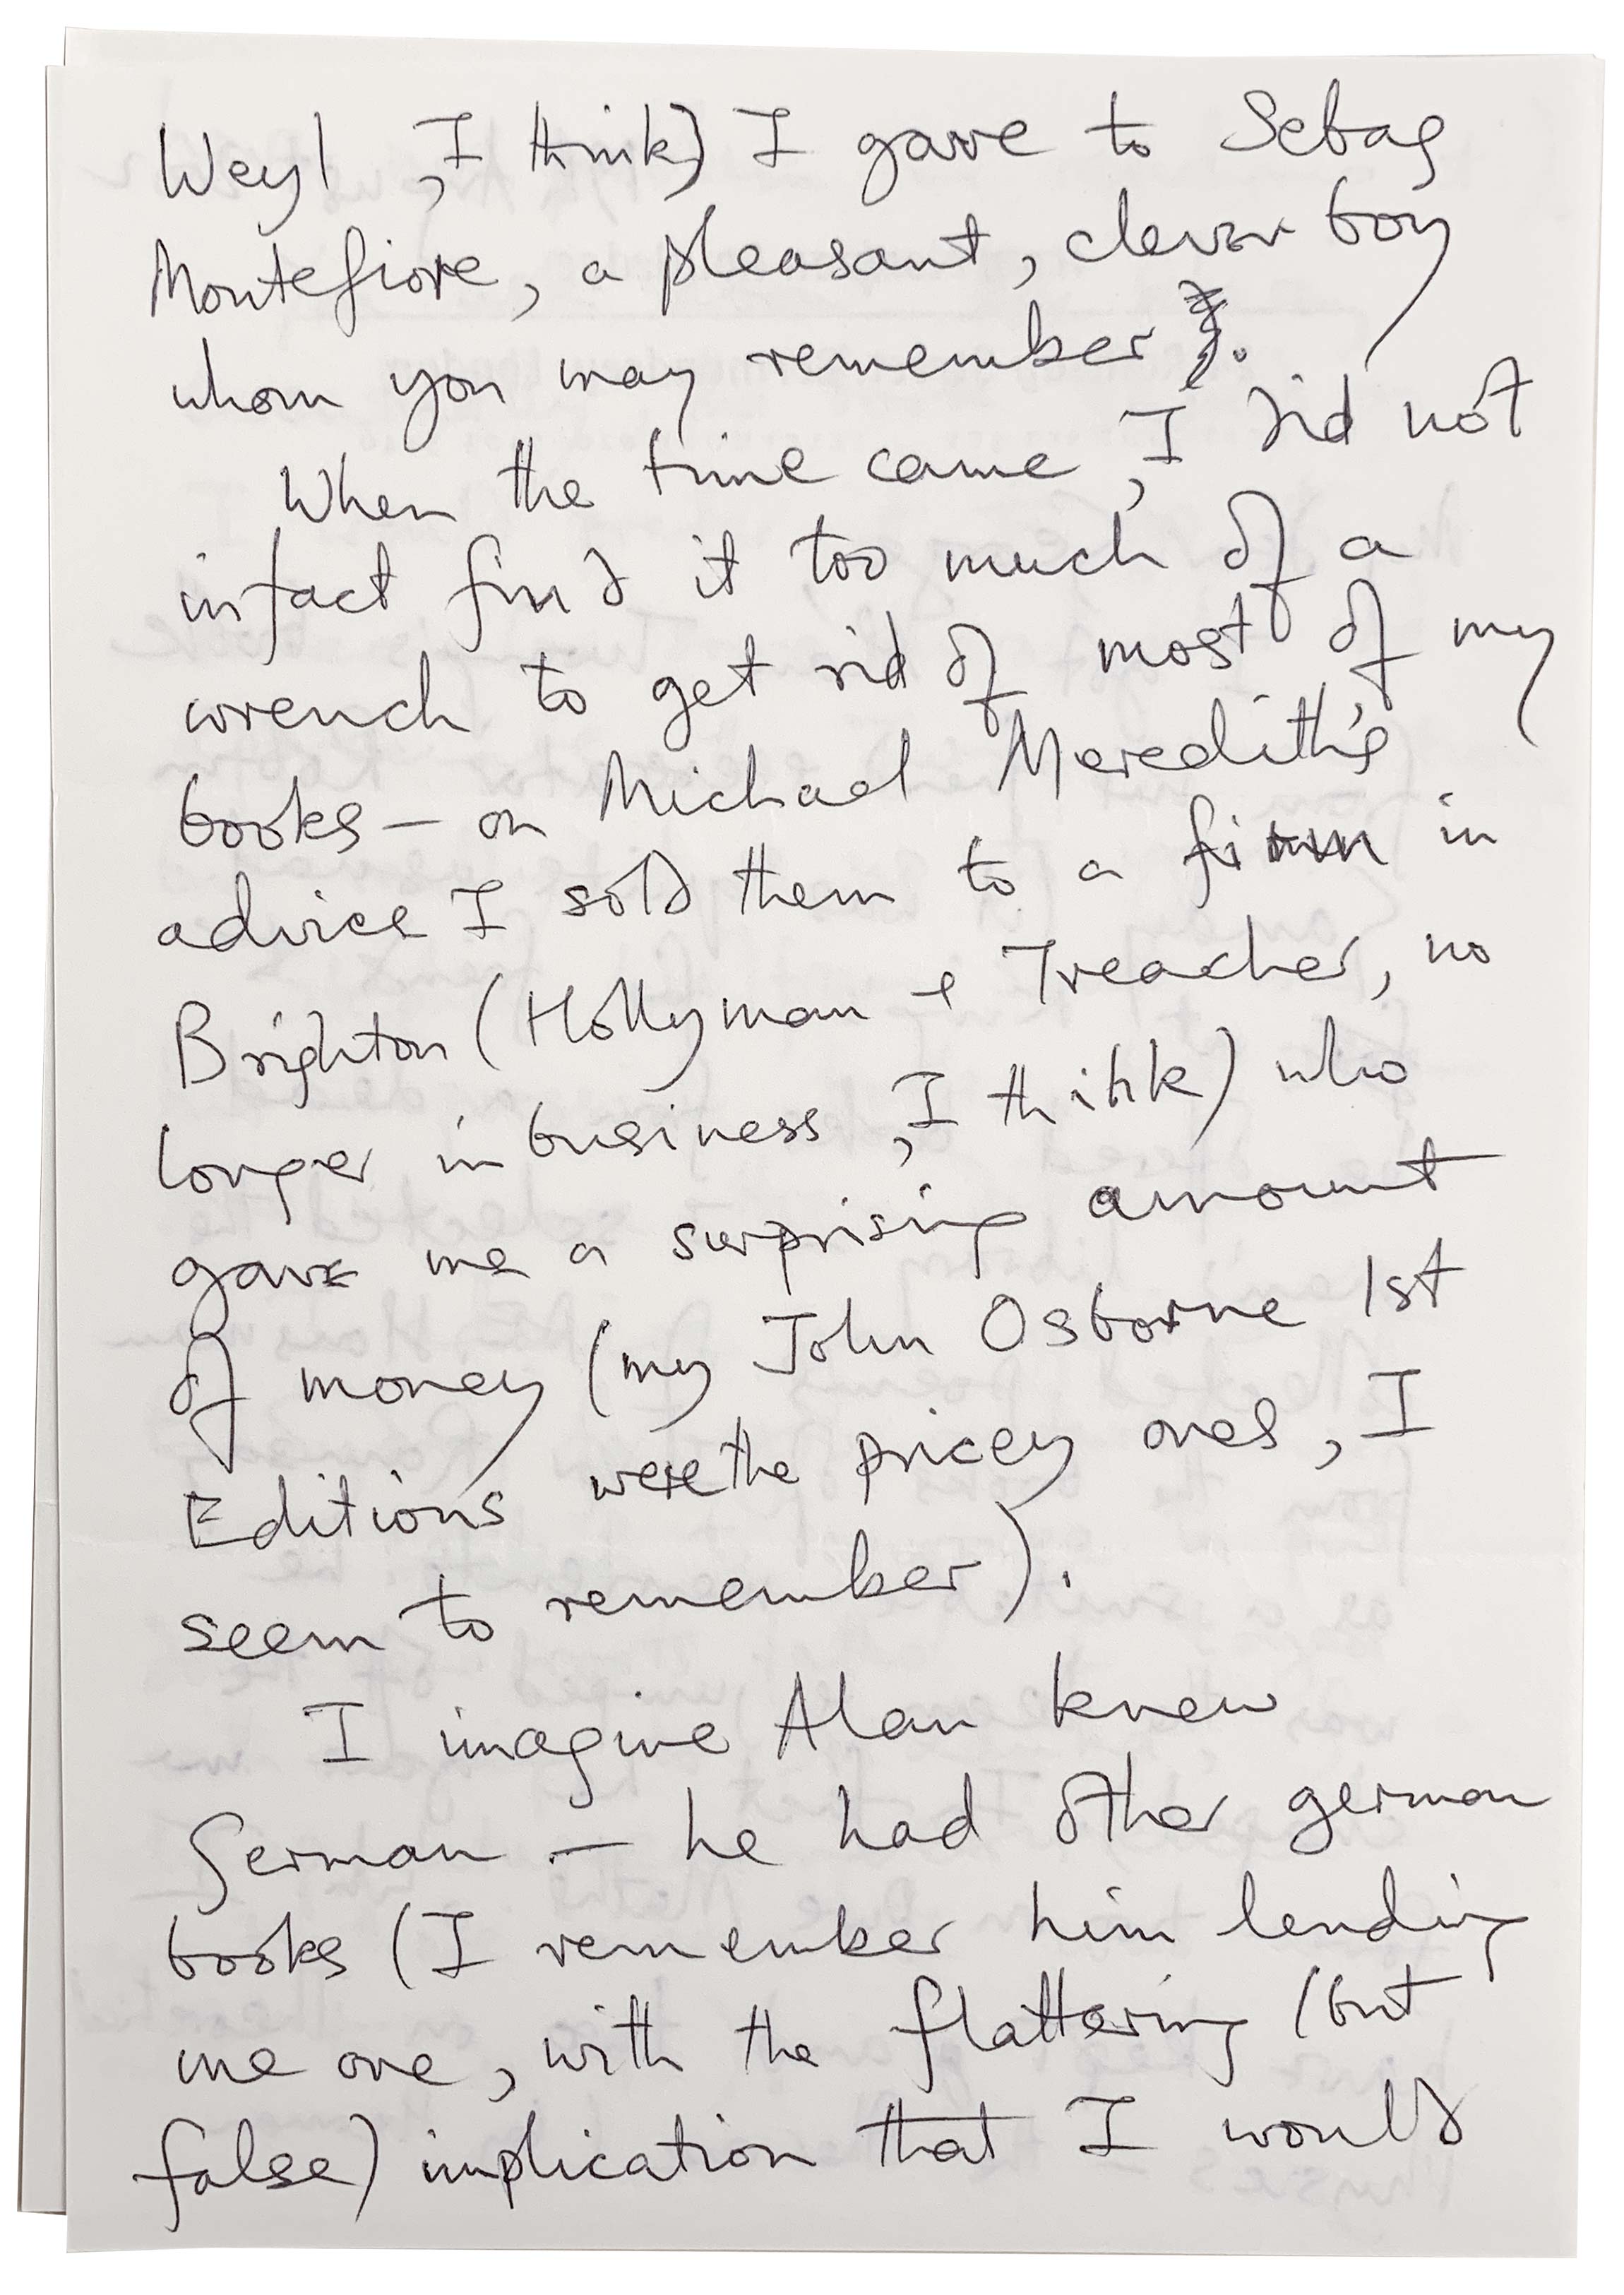 Weyl, I think) I gave to Sebag
Montefiore, a pleasant, clever boy
whom you may remember.
When the time came, I did not
infact find it too much of a
wrench to get rid of most of my
books — on Michael Meredith's
advice I sold them to a firm in
Brighton (Hollyman & Treacher, no
longer in business, I think) who
gave me a surprising amount
of money (my John Osborne 1st
Editions were the pricey ones, I
seem to remember).
I imagine Alan knew
German — he had other german
books (I remember him lending
me one, with the flattering (but
false) implication that I would